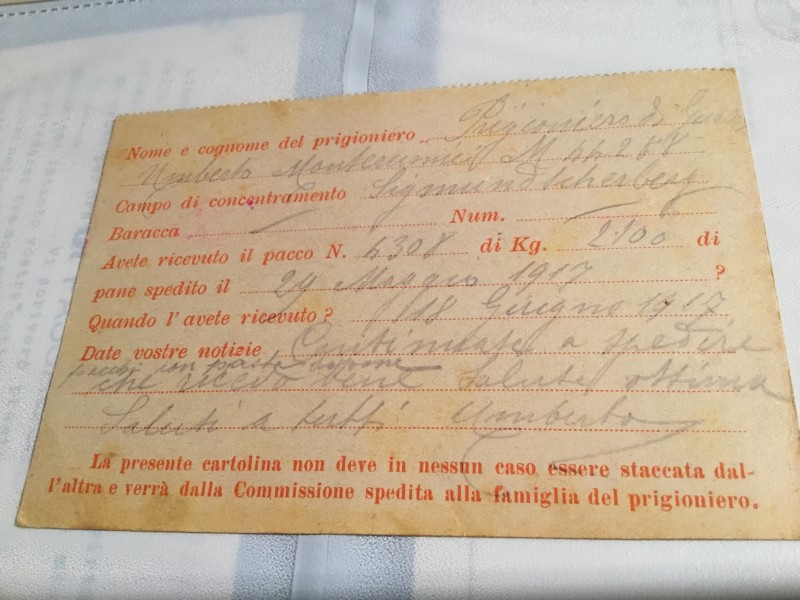 Nome e cognome del prigioniero Prigioniero di Guerra
Umberto M 44288
Campo di concentramento Sigmundscherberg
Baracca Num.
Avete ricevuto il pacco N. 4308 di Kg. 2100 di
pane spedito il 29 Maggio 1917 ?
Quando l'avete ricevuto? 18 Giugno 1917
Date vostre notizie Continuate a spedire
pacchi con pasta
che ricevo bene Salute ottima
Saluti a tutti Umberto
La presente cartolina non deve in nessun caso essere staccata dal-
l'altra e verrà dalla Commissione spedita alla famiglia del prigioniero.